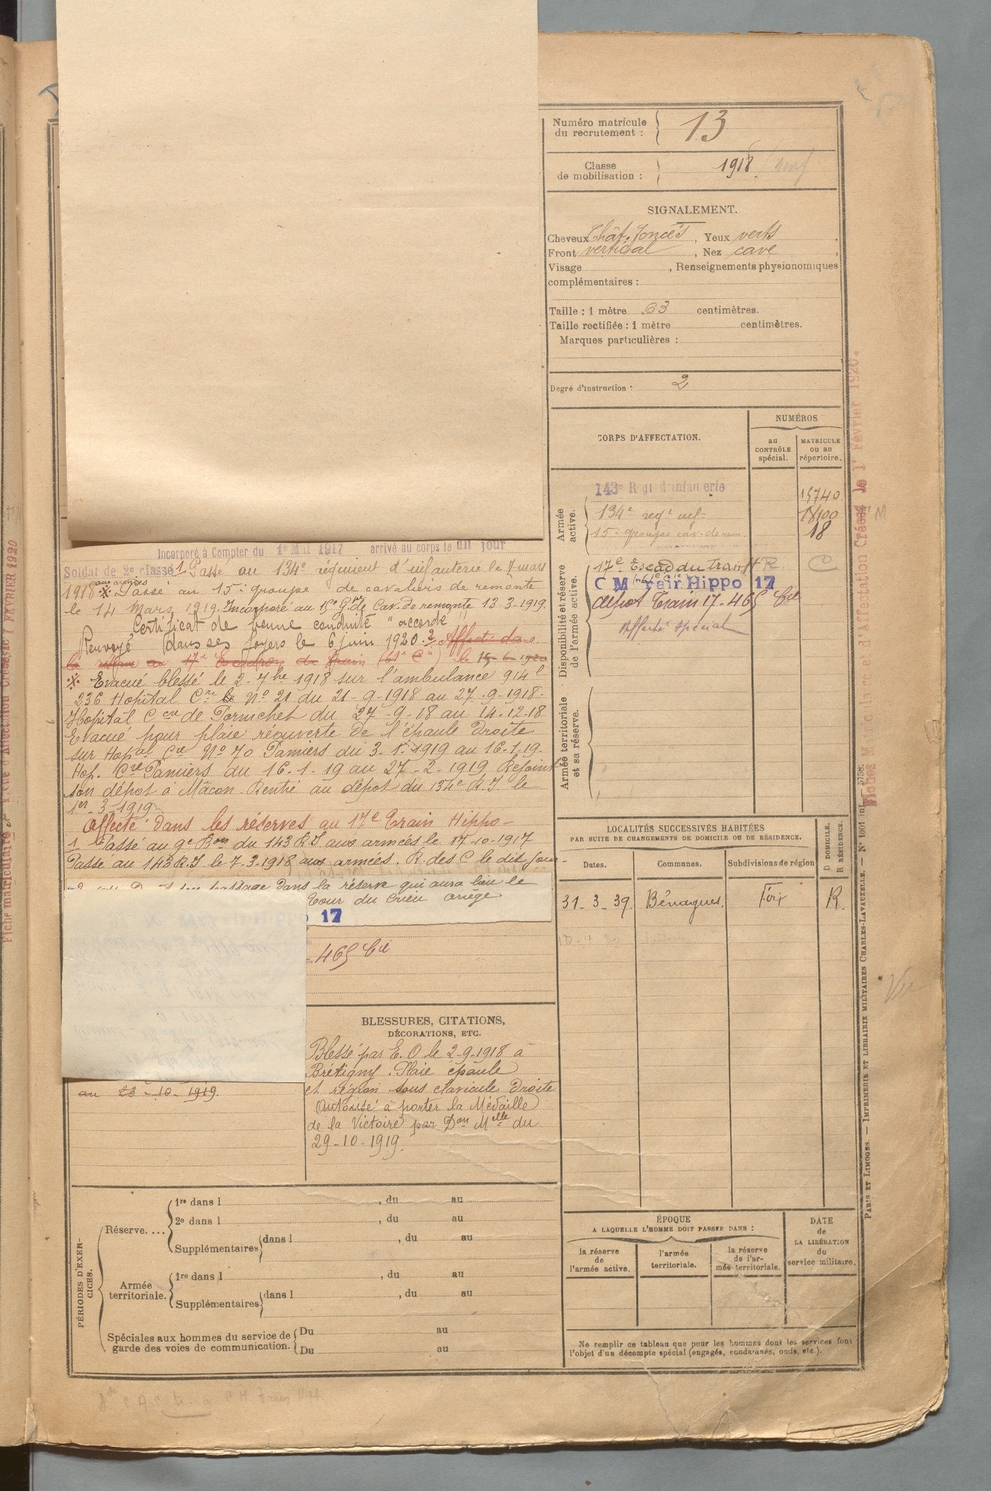 Numéro matricule
du recrutement : 13
Classe
de mobilisation : 1918
SIGNALEMENT.
Cheveux Chât. foncés, Yeux verts
Front vertical, Nez cave
Visage , Renseignements physionomiques
complémentaires :
Taille : 1 mètre 63 centimètres.
Taille rectifiée : 1 mètre centimètres.
Marques particulières :
Degré d'instruction : 2
CORPS D'AFFECTATION.
NUMÉROS
au
CONTRÔLE
spécial.
MATRICULE
ou au
répertoire.
Armée
active.
143e Rgt d'infanterie 15740
134e reg' inf- 18100
15e groupe cav. de rem. 18
Disponibilité et réserve
de l'armée active.
17e Escad du train H R C
C M Train Hippo 17
dépot Train 17 - 465 Cie
Affecté spécial
Armée territoriale
et sa réserve.
Incorporé à Compter du 1er Mai 1917 arrivé au corps le dit jour
Soldat de 2e classe 1 Passé au 134e régiment d'infanterie le 7 mars
1918 aux armées Passé au 15e groupe de cavaliers de remonte
le 14 Mars 1919. Incorporé au 15e Gde Cav. de remonte 13-3-1919.
Certificat de bonne conduite "accordé"
Renvoyé dans ses foyers le 6 juin 1920. 2 Affecté dans
la réserve au 17e Escadron du Train (61e Cie) le 15-6-1920
Evacué blessé le 2-7bre 1918 sur l'ambulance 914
236 Hopital Cre No 21 du 21-9-1918 au 27-9-1918-
Hopital Cre de Pornichet du 27-9-18 au 14-12-18
Evacué pour plaie rouverte de l'épaule Droite
sur Hopal Cre No 70 Pamiers du 3-1-1919 au 16-1-19.
Hop. Cre Pamiers au 16-1-19 au 27-2-1919 Rejoint
son dépot à Mâcon. Rentré au dépot du 134e R.I. le
1er-3-1919-
Affecté dans les réserves au 17e Train Hippo-
1 Passé au 9e Bon du 143 R.I aux armées le 17-10-1917
Passé au 143 R.I le 7-3-1918 aux armées. R. des C. le dit jour-
passage dans la réserve qui aura lieu le
Tour du Crieu Ariège
17
465 Cie
au 23-10-1919.
BLESSURES, CITATIONS,
DÉCORATIONS, ETC.
Blessé par E. O le 2-9-1918 à
Brétigny. Plaie épaule
et région sous clavicule Droite
Autorisé à porter la Médaille
de la Victoire par Don Mlle du
29-10-1919.
LOCALITÉS SUCCESSIVES HABITÉES
PAR SUITE DE CHANGEMENTS DE DOMICILE OU DE RÉSIDENCE.
Dates. Communes. Subdivisions de région
D DOMICILE.
R RÉSIDENCE.
31-3-39. Bénagues. Foix R.
PÉRIODES D'EXER-
CICES.
Réserve....
1re dans l , du au
2e dans l , du au
Supplémentaires dans l , du au
Armée
territoriale.
1re dans l , du au
Supplémentaires dans l , du au
Spéciales aux hommes du service de
garde des voies de communication.
Du au
Du au
ÉPOQUE
A LAQUELLE L'HOMME DOIT PASSER DANS :
la réserve
de
l'armée active.
l'armée
territoriale.
la réserve
de l'ar-
mée territoriale.
DATE
de
LA LIBÉRATION
du
service militaire.
Ne remplir ce tableau que pour les hommes dont les services font
l'objet d'un décompte spécial (engagés, condamnés, omis, etc.).
PARIS ET LIMOGES. — IMPRIMERIE ET LIBRAIRIE MILITAIRES CHARLES-LAVAUZELLE.
Fiches Matricule et d'Affectation Créées le 1er Février 1920.
Vu